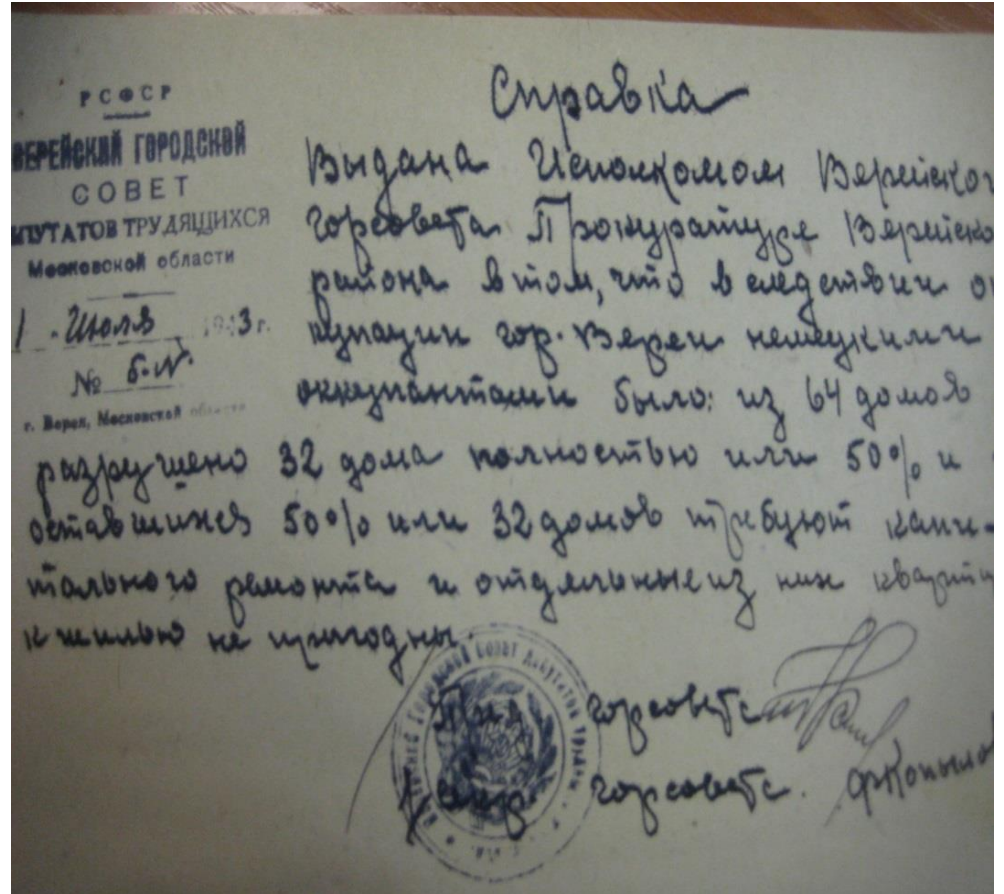 РСФСР
ВЕРЕЙСКИЙ ГОРОДСКОЙ
СОВЕТ
ДЕПУТАТОВ ТРУДЯЩИХСЯ
Московской области
1 Июля 1943 г.
№ б-N.
г. Верея, Московской области
Справка
Выдана Исполкомом Верейског
Горсовета Прокуратуре Верейско
района в том, что в следствии ок
купации гор. Вереи немецкими
оккупантами было: из 64 домов
разрушено 32 дома полностью или 50% и
оставшихся 50% или 32 домов требуют капи-
тального ремонта и отдельные из них кварти
к жилью не пригодны.
горсовета
Секр. горсовета Копылов